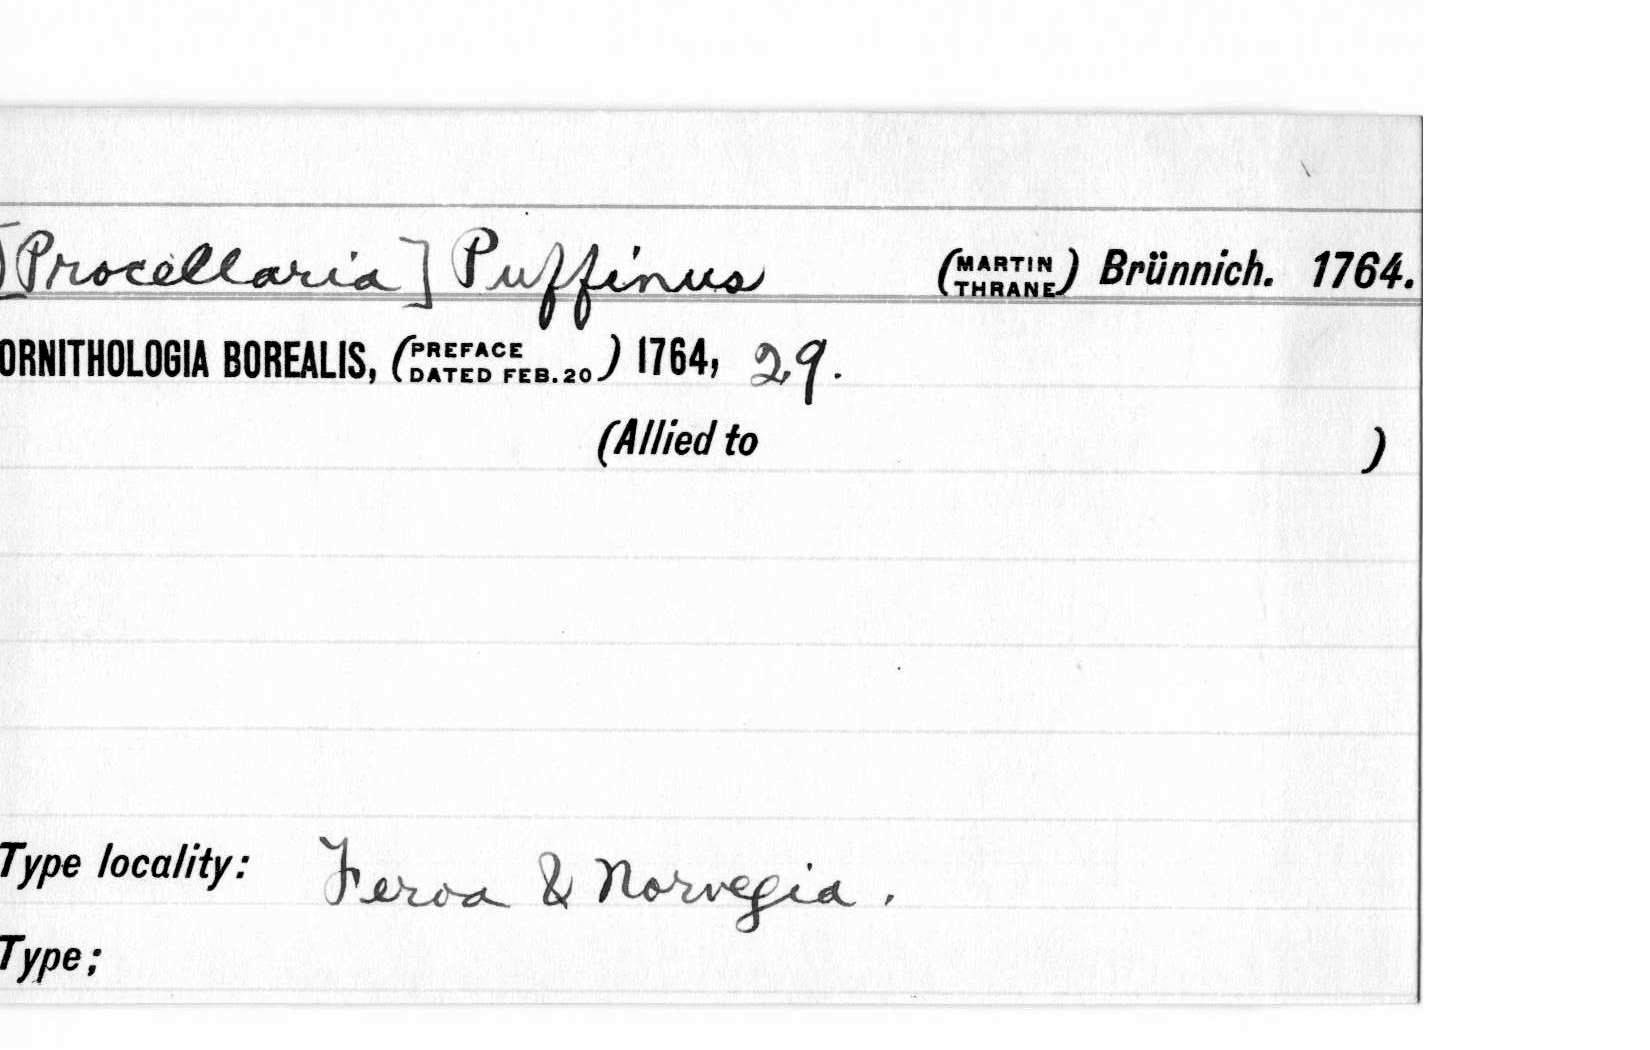 [Procellaria] Puffinus (MARTIN THRANE) Brünnich. 1764.
ORNITHOLOGIA BOREALIS, (PREFACE DATED FEB. 20) 1764, 29.
(Allied to )
Type locality: Feroa & Norvegia.
Type;